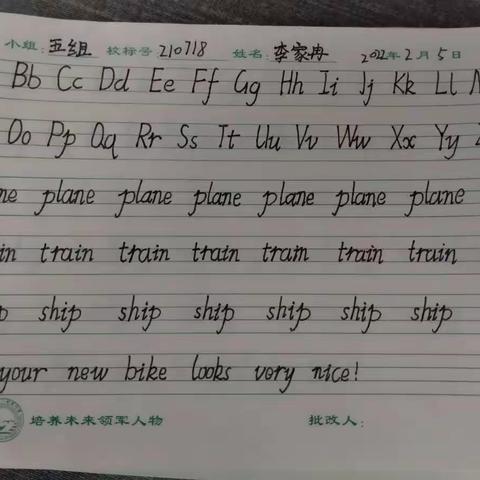 小组: 五组 校标号 210718 姓名: 李家冉 2022年2月5日
Bb Cc Dd Ee Ff Gg Hh Ii Jj Kk Ll
Oo Pp Qq Rr Ss Tt Uu Vv Ww Xx Yy
ne plane plane plane plane plane plane
in train train train train train train
p ship ship ship ship ship ship
your new bike looks very nice!
培养未来领军人物 批改人: